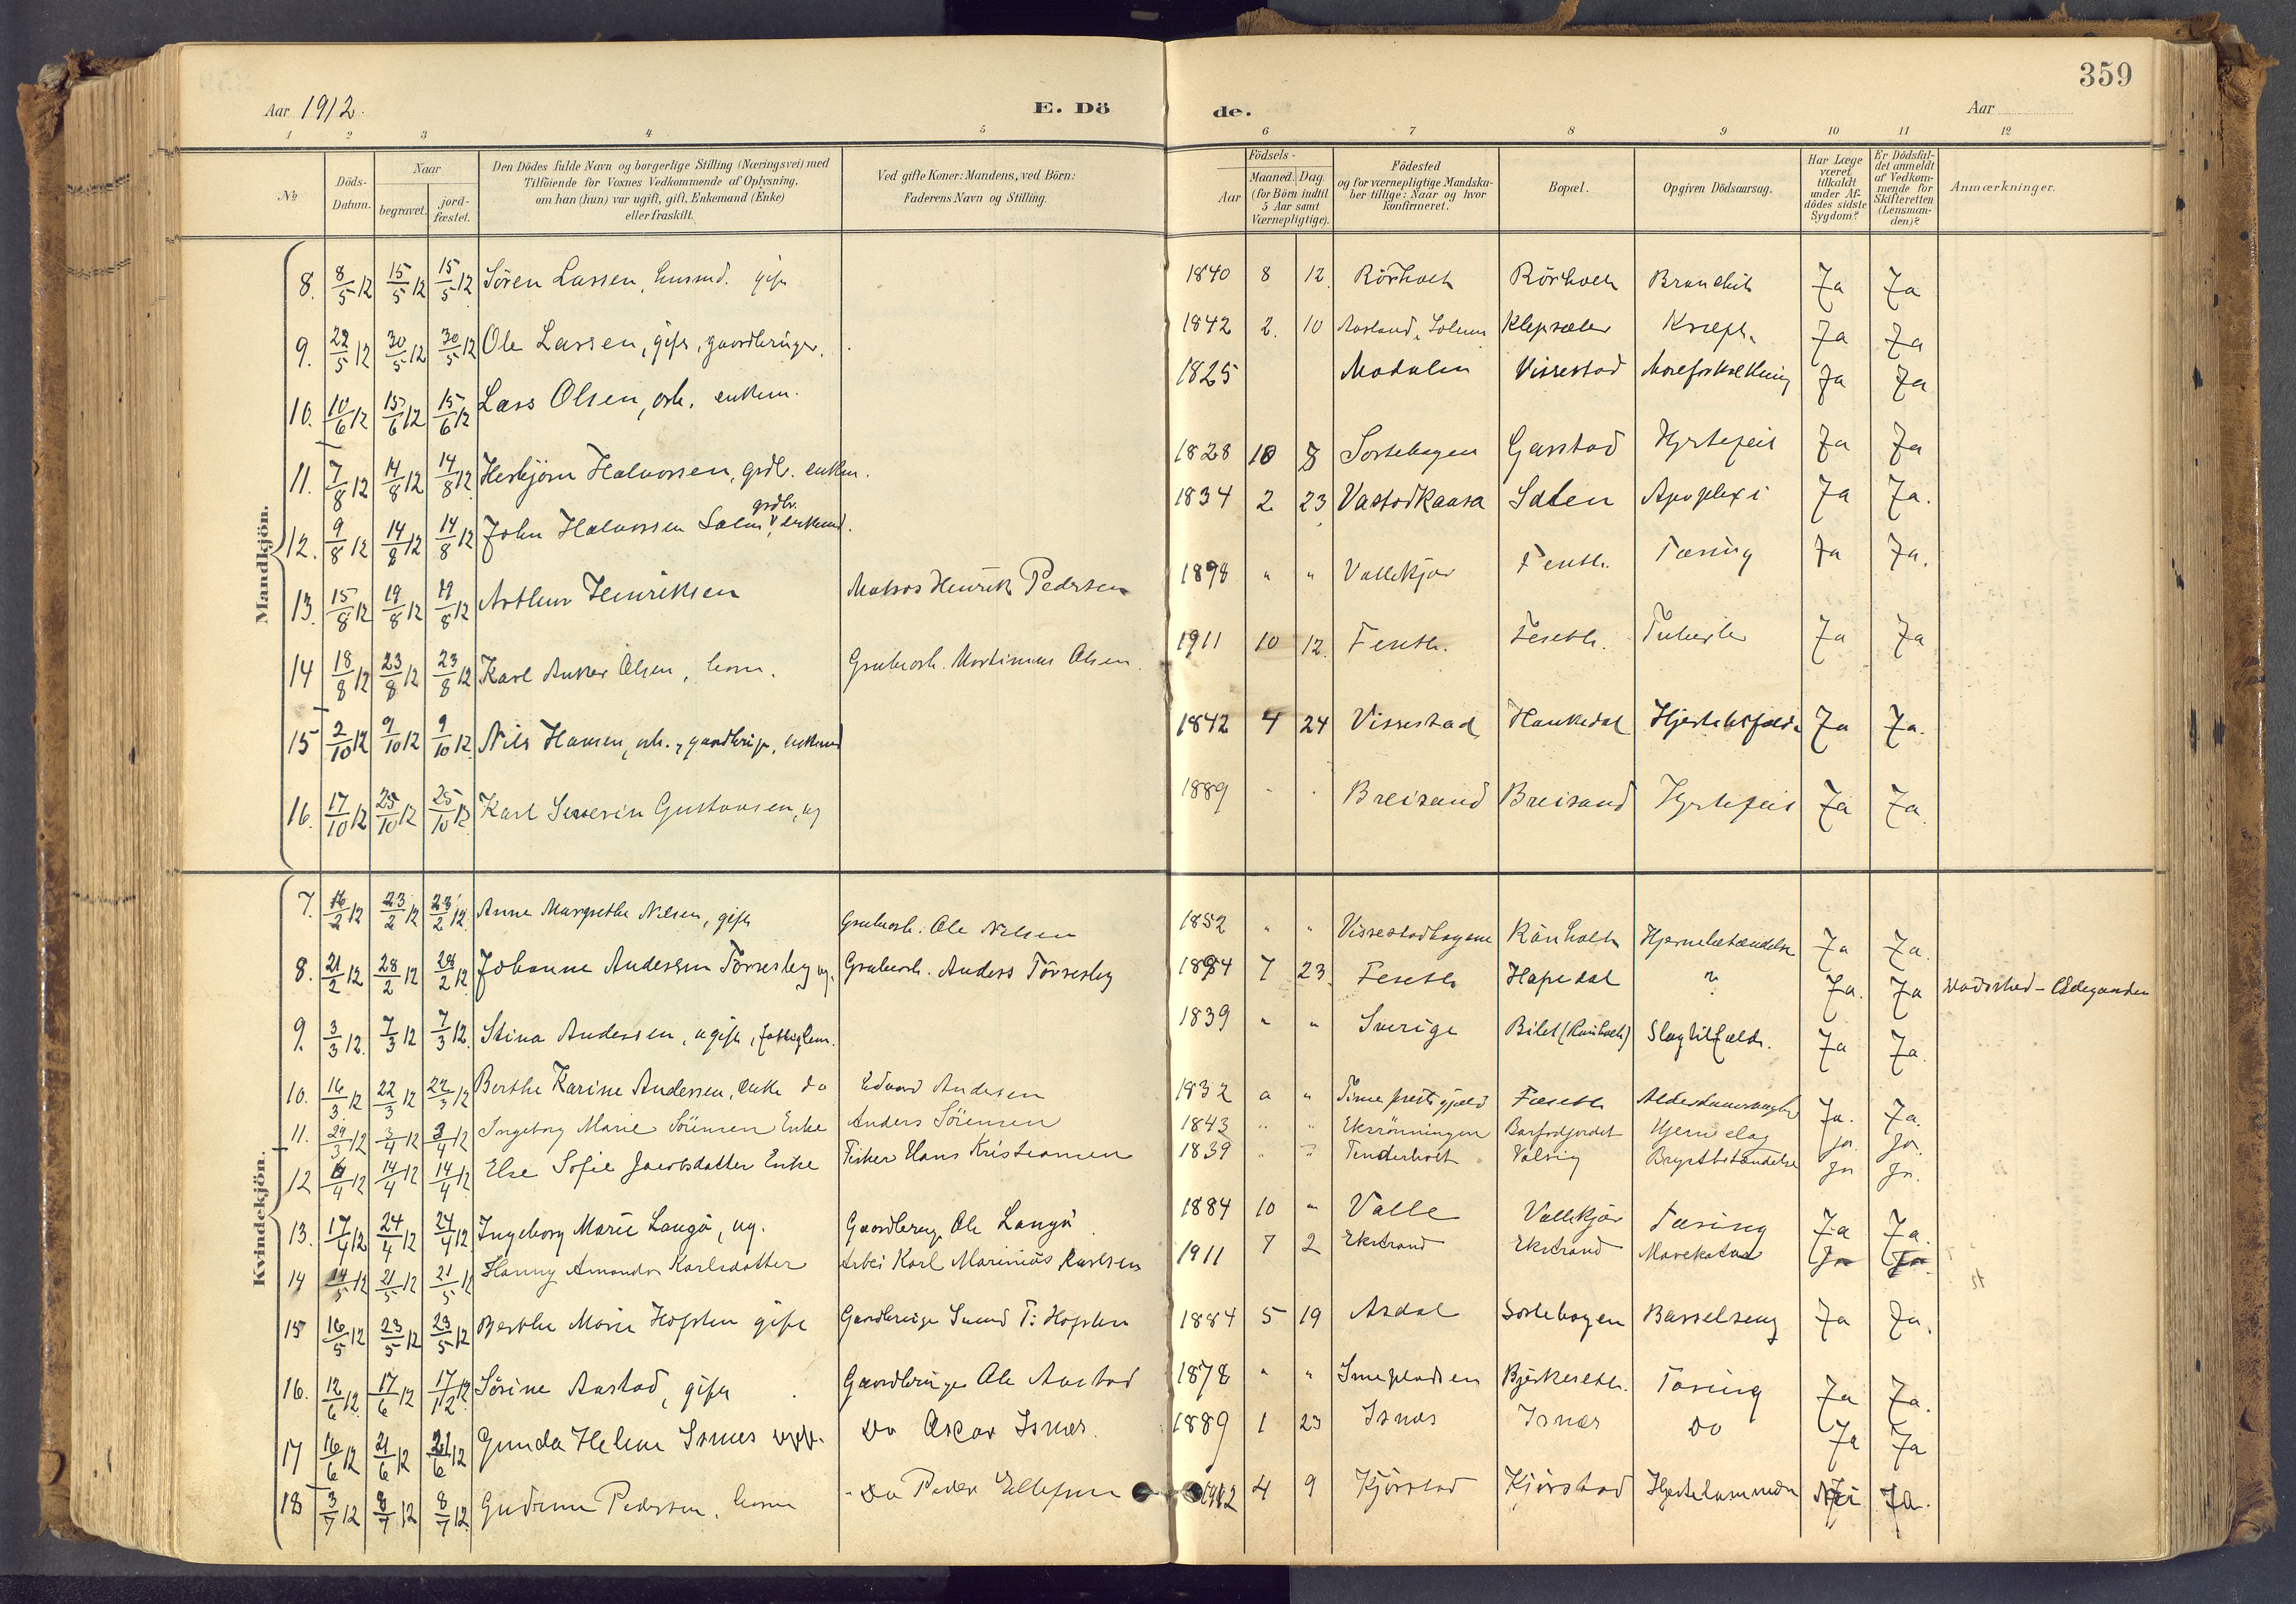 359
Aar 1912. E. Dö de. Aar
1 2 3 4 5 6 7 8 9 10 11 12
No
Döds-Datum.
Naar
begravet.
jord-fæstet.
Den Dödes fulde Navn og borgerlige Stilling (Næringsvei) med
Tilföiende for Voxnes Vedkommende af Oplysning,
om han (hun) var ugift, gift, Enkemand (Enke)
eller fraskilt.
Ved gifte Koner: Mandens, ved Börn:
Faderens Navn og Stilling.
Födsels-
Aar
Maaned. Dag.
(for Börn indtil
5 Aar samt
Værnepligtige).
Födested
og for værnepligtige Mandska-
ber tillige: Naar og hvor
konfirmeret.
Bopæl.
Opgiven Dödsaarsag.
Har Læge
været
tilkaldt
under Af-
dödes sidste
Sygdom?
Er Dödsfal-
det anmeldt
af Vedkom-
mende for
Skifteretten
(Lensman-
den)?
Anmærkninger.
Mandkjön.
8. 8/5 12 15/5 12 15/5 12 Sören Lassen, husmd. gift 1840 8 12 Rörholt Rörholt Bronchit Ja Ja
9. 22/5 12 30/5 12 30/5 12 Ole Larsen, gift, gaardbruger. 1842 2. 10 Solum Klepsæter Kræft. Ja Ja
10. 10/6 12 15/6 12 15/6 12 Lars Olsen, arb. enkem. 1825 Modalen Vissestad Ja Ja
11. 7/8 12 14/8 12 14/8 12 Herbjörn Halvorsen, grdb. enkem. 1828 10 Sortehagen Garstad Hjertefeil Ja Ja
12. 9/8 12 14/8 12 14/8 12 John Halvorsen grdbr. enkemd. 1834 2 23 Vastadkaasa Apoplexi Ja Ja.
13. 15/8 12 19/8 12 19/8 12 Arthur Henriksen Matros Henrik Pedersen 1898 " " Vallekjær Fenth. Tæring Ja Ja.
14 18/8 12 23/8 12 23/8 12 Karl Anker Olsen, barn. Grubearb. Martinius Olsen. 1911 10 12. Ja Ja
15 2/10 12 9/10 12 9/10 12 Nils Hansen, arb., gaardbrug, enkemd 1842 4 24 Vissestad Haukedal Ja Ja.
16. 17/10 12 25/10 12 25/10 12 Karl Severin Gustavsen, ug 1889 Breisand Breisand Hjertefeil Ja Ja
Kvindekjön.
7. 16/2 12 23/2 12 23/2 12 Anne Margrethe Nilsen, gift Grubearb. Ole Nilsen 1852 " " Vissestadhagene Rönholt Hjernebetændelse Ja Ja.
8. 21/2 12 28/2 12 28/2 12 Johanne Andersen Törresby ug. Grubearb. Anders Törresby 7 23. Hapedal " Ja. Ja
9. 3/3 12. 7/3 12 7/3 12. Stina Andersen, ugift, fattiglem. 1839 " " Sverige Slagtilfælde. Ja Ja.
10. 16/3 12 22/3 12 22/3 12 Berthe Karine Andersen, enke da Edvard Andersen 1832 " " Ja. Ja.
11. 29/3 12 3/4 12 3/4 12 Ingeborg Marie Sörensen Enke Anders Sörensen 1843 " " Ekrönningen Barfodjordet Hjerneslag ja. ja.
12 4/12 14/4 12 14/4 12 Else Sofie Jacobsdatter Enke Fisker Hans Kristiansen 1839 " " Tinderholt Valvig Brystbetændelse ja ja.
13. 17/4 12 24/4 12 24/4 12 Ingeborg Marie Langö, ug. Gaardbrug. Ole Langö 1884 10 " Valle Vallekjær Tæring Ja Ja.
14 14/5 12 21/5 12 21/5 12 Hanny Amanda Karlsdatter Arbei Karl Marinius Karlsen 1911 7 2 Ekstrand Ekstrand Mavekatar Ja Ja
15 16/5 12 23/5 12 23/5 12 Berthe Marie Hopsten gift Gaardbruger T. Hopsten 1884 5 19 Asdal Sortehagen Barselseng Ja Ja.
16. 12/6 12. 17/6 12 17/12 Sörine Aastad, gift Gaardbruger Ole Aastad 1878 " " Bjerkeseth. Tæring Ja Ja.
17 16/6 12 21/6 12 21/6 12 Gunda Helene Isnes Do Oscar Isnes. 1889 1 23 Isnes Isnæs Do Ja Ja
18 3/7 12 8/7 12 8/7 12 Gudrun Pedersen, barn Do Peder Ellefsen 1912 4 9 Kjörstad Kjörstad Nei Ja.